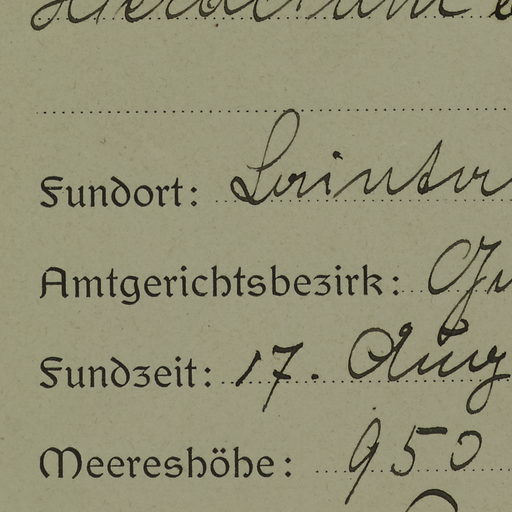 Hieracium
Fundort: Lainta
Amtgerichtsbezirk:
Fundzeit: 17. Aug
Meereshöhe: 950